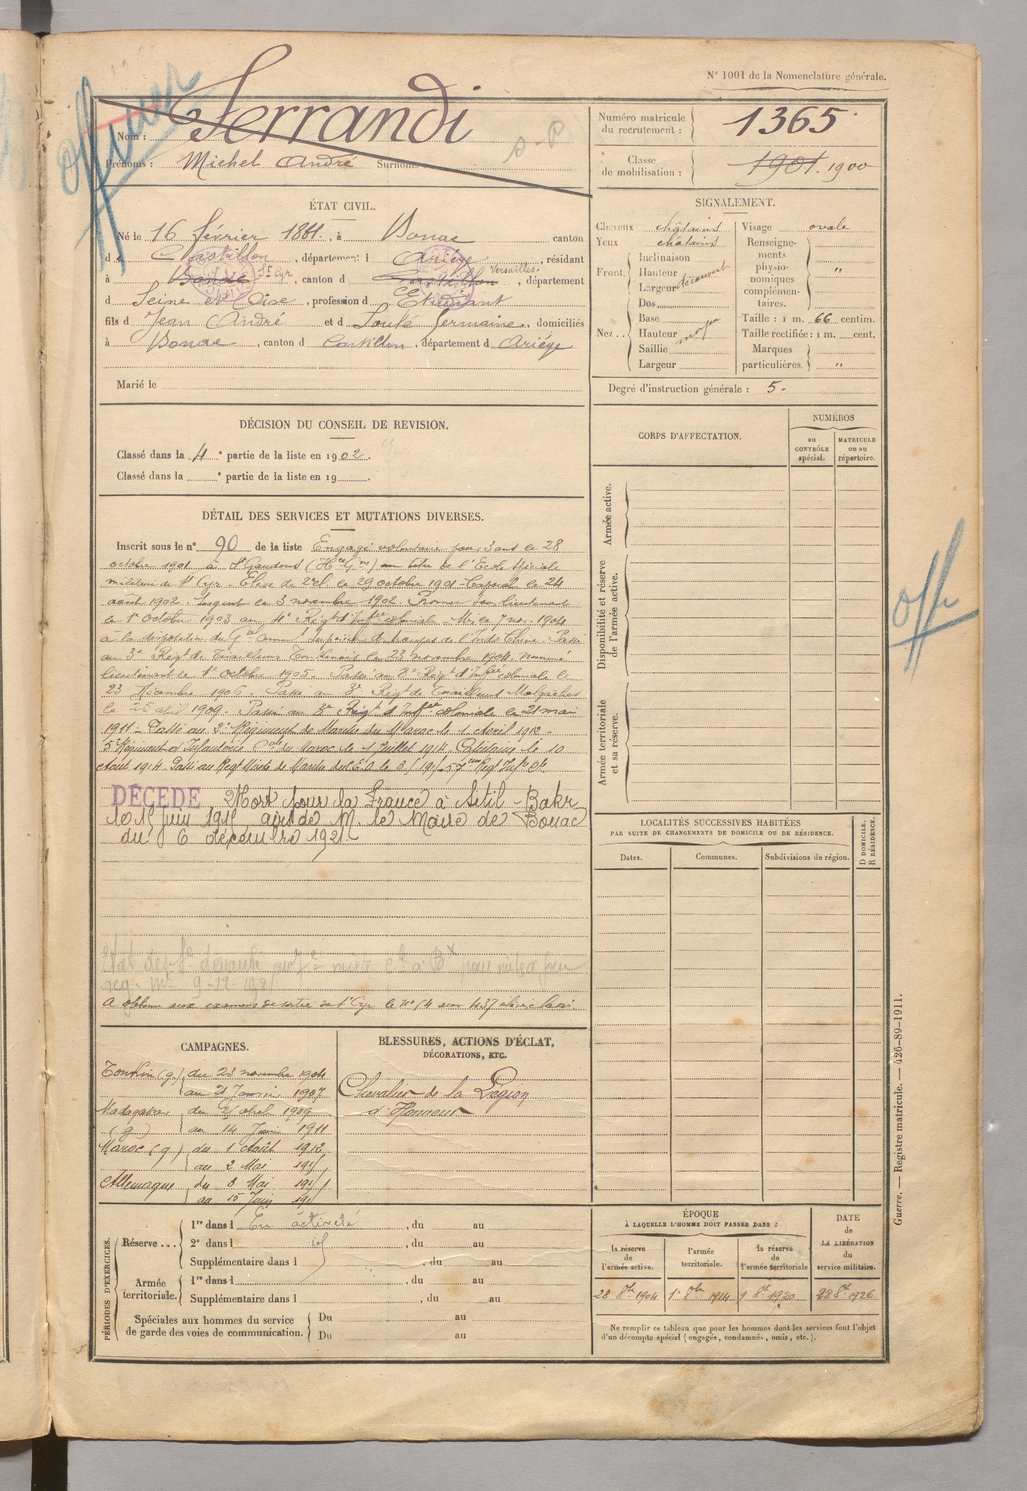 N° 1001 de la Nomenclature générale.
Officier
Nom : Ferrandi
Prénoms : Michel André Surnoms
S-P
Numéro matricule du recrutement : 1365
Classe de mobilisation : 1901. 1900
ÉTAT CIVIL.
Né le 16 février 1881, à Bonac canton
d e Castillon, département d Ariège, résidant
à Bonac St Cyr, canton d Castillon Versailles, département
d Seine et Oise, profession d Etudiant
fils d Jean André et d Souté Germaine, domiciliés
à Bonac, canton d Castillon, département d Ariège
Marié le
SIGNALEMENT.
Cheveux châtains
Yeux châtains
Front. Inclinaison
Hauteur
Largeur découvert
Nez.. Dos
Base
Hauteur moyen
Saillie
Largeur
Visage ovale
Renseignements physionomiques complémentaires. "
Taille : 1 m. 66 centim.
Taille rectifiée : 1 m. cent.
Marques particulières. "
Degré d'instruction générale : 5.
DÉCISION DU CONSEIL DE REVISION.
Classé dans la 4 e partie de la liste en 1902.
Classé dans la e partie de la liste en 19 .
DÉTAIL DES SERVICES ET MUTATIONS DIVERSES.
Inscrit sous le n° 90 de la liste Engagé volontaire pour 3 ans le 28
octobre 1901 à St Gaudens (Hte Gne) au titre de l'Ecole Spéciale
militaire de St Cyr. Elève de 2e cl. le 29 octobre 1901. Caporal le 24
août 1902. Sergent le 3 novembre 1902. Promu sous lieutenant
le 1er octobre 1903 au 4e Régt d'Infie coloniale. Mis le 7 nov. 1904
à la disposition du Gal Commt Supérieur des troupes de l'Indo Chine. Passé
au 3e Régt de Tirailleurs Tonkinois le 23 novembre 1904. nommé
lieutenant le 1er octobre 1905. Passé au 8e Régt d'Infie coloniale le
23 Décembre 1906. Passé au 3e Régt de Tirailleurs Malgaches
le 25 avril 1909. Passé au 8e Régt d'Infie coloniale le 21 mai
1911. Passé au 2e Régiment de Marche du Maroc le 1 Avril 1912.
5e Régiment d'Infanterie Cle du Maroc le 1 Juillet 1914. Capitaine le 10
Août 1914. Passé au Régt Mixte de Marche 57eme Regt Infie Cle
DÉCÉDÉ Mort pour la France à Sitil-Bakr
le 15 juin 1915, avis de M. le Maire de Bonac
du 6 décembre 1921
A obtenu aux examens de sortie de St Cyr le n° 14 sur 437 élèves classés
CAMPAGNES.
Tonkin (g) du 23 novembre 1904
au 21 Janvier 1907
Madagascar du 25 avril 1909
(g) au 14 Juin 1911
Maroc (g) du 1 Août 1912
au 2 Mai 1915
Allemagne du 3 Mai 1915
au 15 Juin 1915
BLESSURES, ACTIONS D'ÉCLAT,
DÉCORATIONS, ETC.
Chevalier de la Légion
d'Honneur
CORPS D'AFFECTATION.
NUMÉROS
AU CONTRÔLE spécial.
MATRICULE ou au répertoire.
Armée active.
Disponibilité et réserve de l'armée active.
Armée territoriale et sa réserve.
Off
LOCALITÉS SUCCESSIVES HABITÉES
PAR SUITE DE CHANGEMENTS DE DOMICILE OU DE RÉSIDENCE.
Dates.
Communes.
Subdivisions de région.
D DOMICILE.
R RÉSIDENCE.
PÉRIODES D'EXERCICES.
Réserve... 1re dans l En activité, du au
2e dans l , du au
Supplémentaire dans l , du au
Armée territoriale. 1re dans l , du au
Supplémentaire dans l , du au
Spéciales aux hommes du service de garde des voies de communication. Du au
Du au
ÉPOQUE
À LAQUELLE L'HOMME DOIT PASSER DANS :
la réserve de l'armée active.
l'armée territoriale.
la réserve de l'armée territoriale
DATE de LA LIBÉRATION du service militaire.
28 8bre 1904
1er 8bre 1914
1 8bre 1920
28 8bre 1926
Ne remplir ce tableau que pour les hommes dont les services font l'objet
d'un décompte spécial (engagés, condamnés, omis, etc.).
Guerre. — Registre matricule. — 426-89-1911.